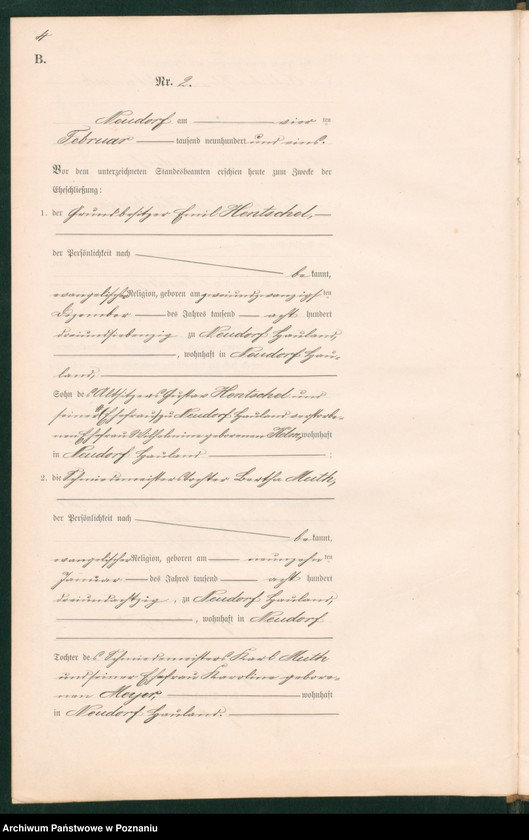 4
B.
Nr. 2.
Neudorf am vier ten
Februar tausend neunhundert und eins.
Vor dem unterzeichneten Standesbeamten erschien heute zum Zwecke der
Eheschließung:
1. der Grundbesitzer Emil Hentschel,
der Persönlichkeit nach
be kannt,
evangelischer Religion, geboren am zweiundzwanzigs ten
Dezember des Jahres tausend acht hundert
dreiundsiebenzig zu Neudorf Hauland,
, wohnhaft in Neudorf Hau-
land,
Sohn des Altsitzers Gustav Hentschel und
seiner zu Neudorf Hauland verstorbe-
nen Ehefrau geborenen wohnhaft
in Neudorf Hauland ;
2. die Schmiedemeisterstochter Bertha Muth,
der Persönlichkeit nach
be kannt,
evangelischer Religion, geboren am neunzehn ten
Januar des Jahres tausend acht hundert
dreiundachtzig , zu Neudorf Hauland,
, wohnhaft in Neudorf
Tochter des Schmiedemeisters Karl Muth
und seiner Ehefrau Karoline gebore-
nen Meyer, wohnhaft
in Neudorf Hauland.
Archiwum Państwowe w Poznaniu